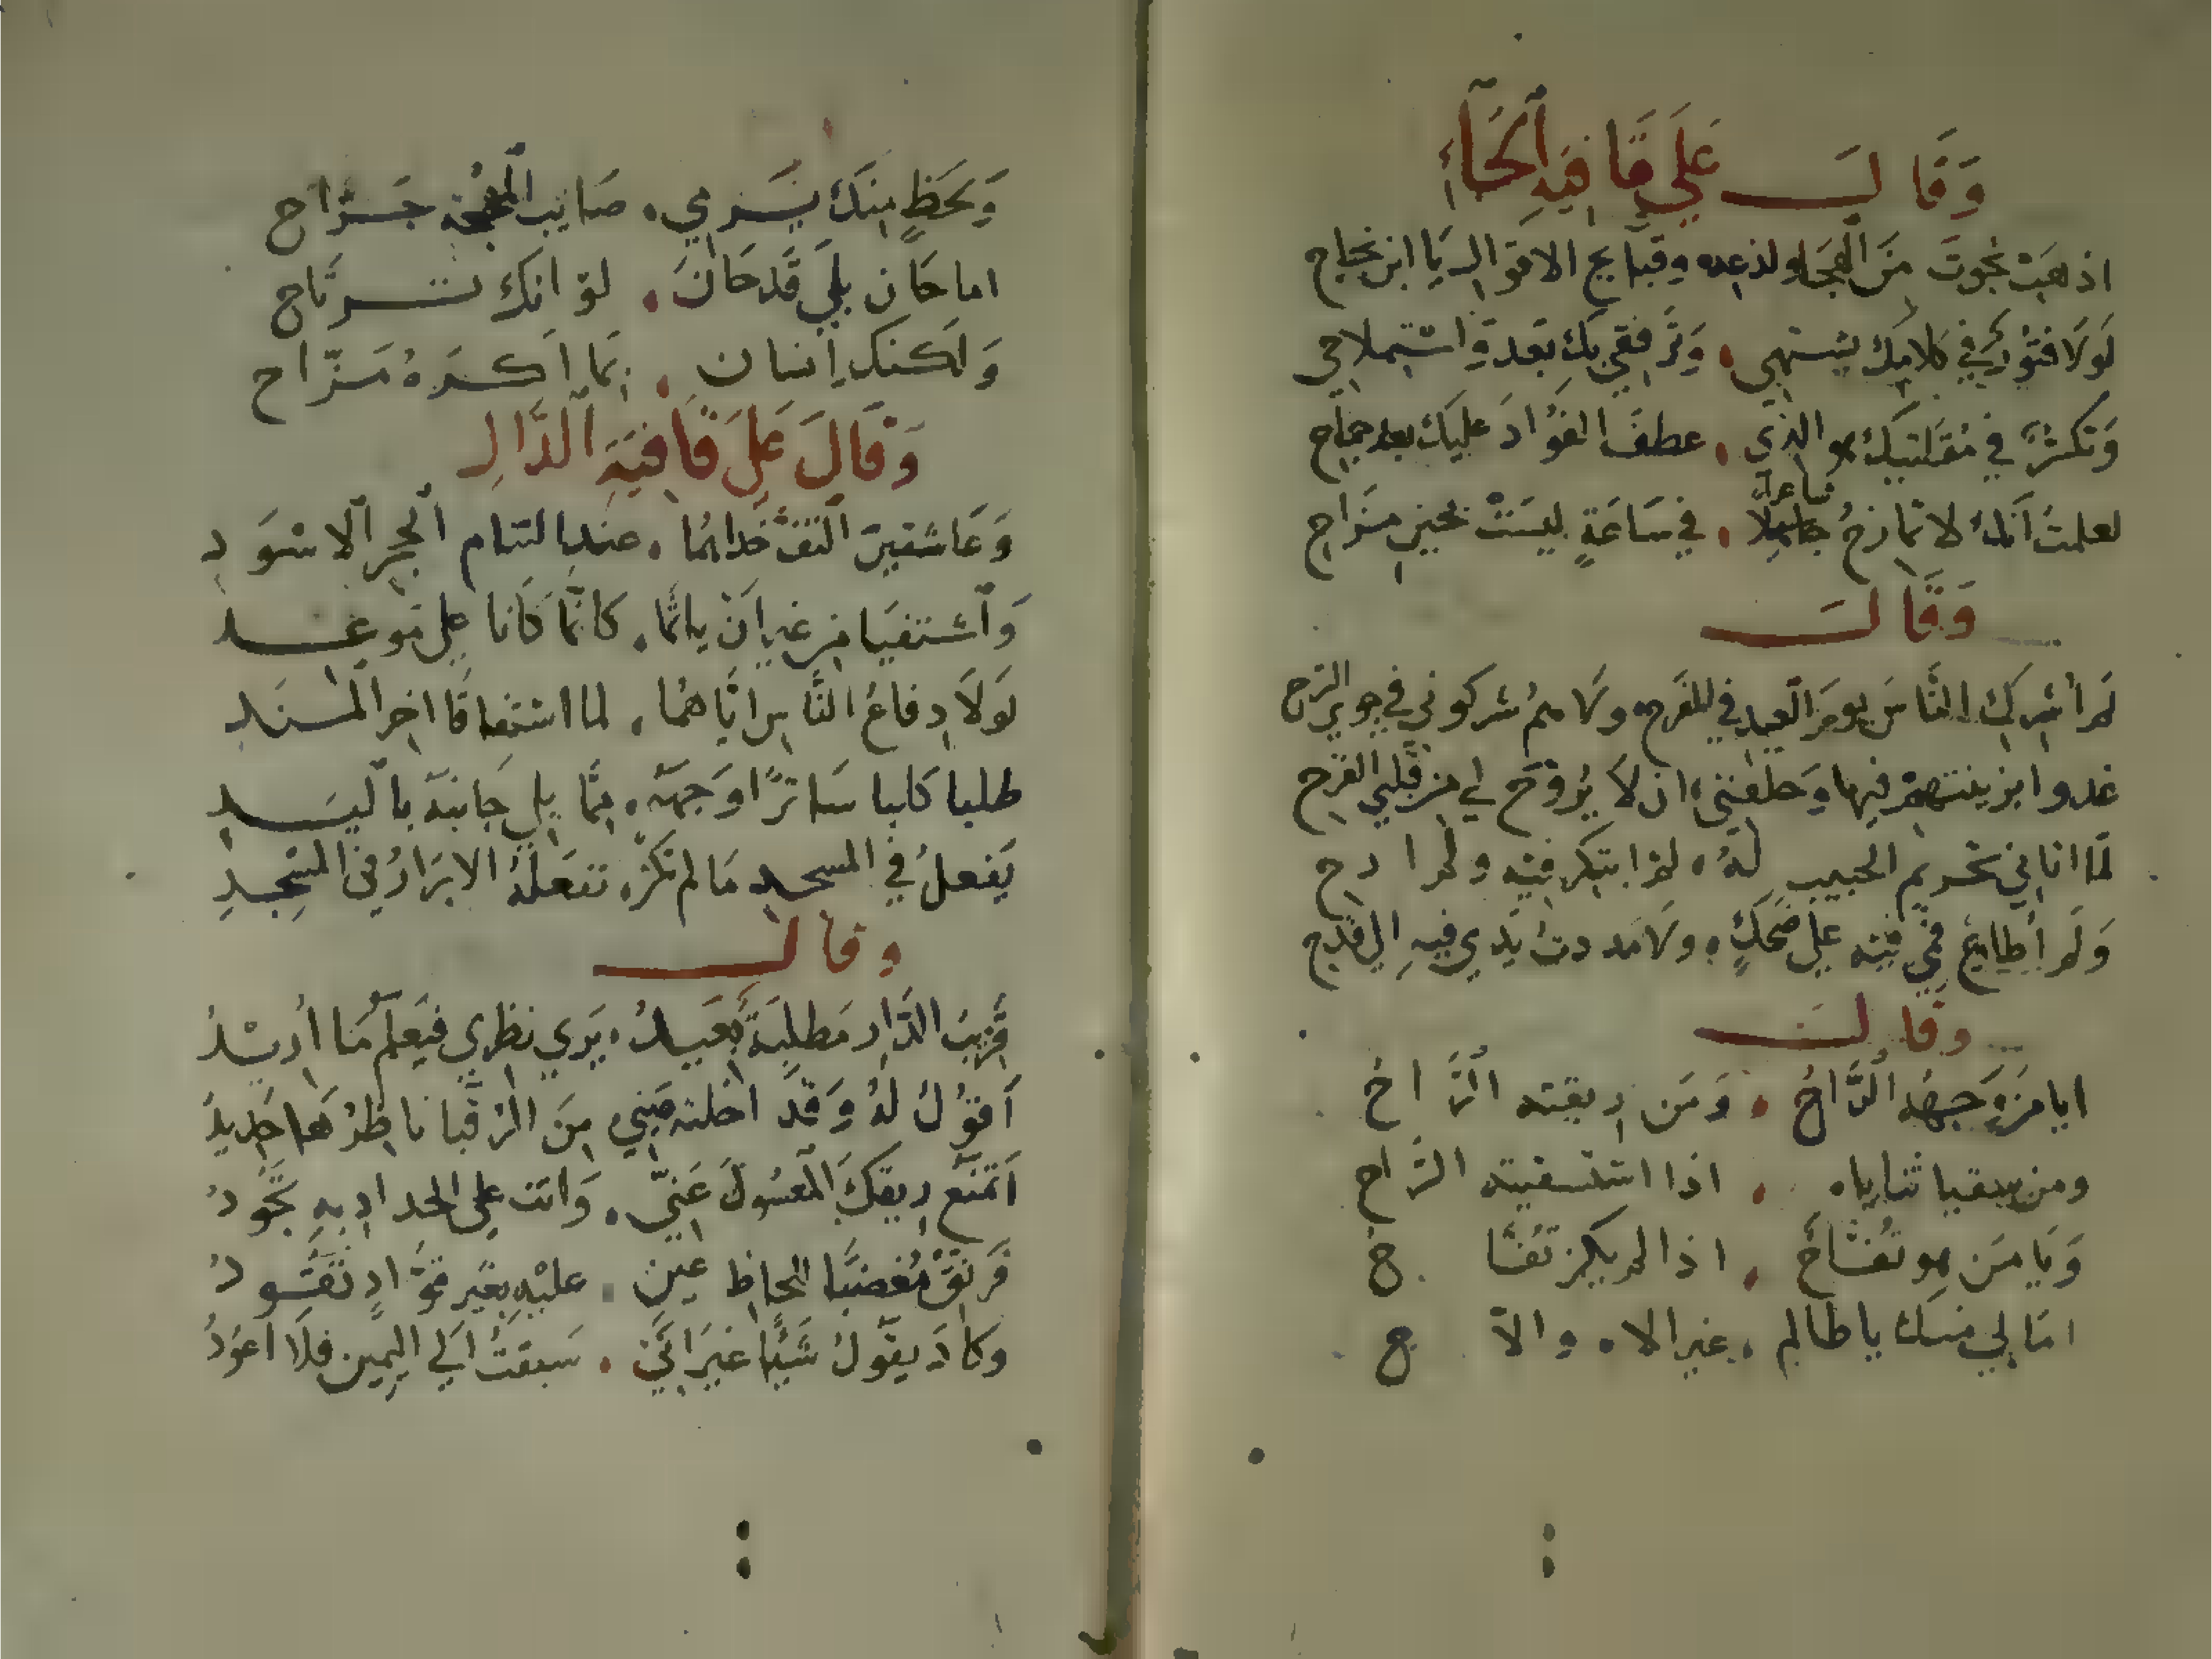 وَقَالَ عَلَى قَافِيَةِ ٱلْحَآءِ
اذهَبْ نجوتَ مِنَ الهِجَا ولذعه وقبايح الاقوال يَا ابن نجاح
لَولَا فتُورٌ في كلامِك يشتهي وَتَرفقي بك بَعدَ وَاستِملاحي
وَتكسّرٌ في مُقلتيك هو الذي عطفَ الفُؤادَ عليك بعد جماح
لعلمتَ أنك لا تمازحُ شاعرًا في سَاعَةٍ ليسَتْ بحين مزَاح
وَقَالَ
لم أشرك النَّاسَ يومَ العِيد في الفرح ولا همُ شركوني في جوى الترح
غدوا بزينتهم فيها وَخلفني ان لا يُروّح لي من قلبي القرح
لمّا اتاني بتحريم الحبيب لَهُ لم ابتكر فيه ولم ارح
وَلَم أطالع فتًى فيه على ضحكٍ ولا مددت يَدي فيه الى قدح
وقالَ
ايا مَن وَجهُه الدَّاحُ وَمَن ريقته الرَّاحُ
ومن سقيا ثناياه اذا استسقيته الرَّاح
وَيَا مَن هو تُفَّاحٌ اذا لم يكن تفَّاح
امَا لي منك يا ظالم غير الاه والاّح
وَلحظٍ مِنكَ يَرمي صَايب المُهجَة جَرَّاح
اما حَان بلَى قَد حَانَ لو انك ترتَاح
وَلكنك إنسان بمَا اكرَهُ مَزّاح
وَقَالَ عَلَى قَافِيَةِ ٱلدَّالِ
وَعَاشقينِ ٱلتفَّ خداهُمَا عند التثام ٱلحجر ٱلاسْوَدِ
وَٱشتفيَا من غير ان ياثَما كانَّما كَانا على مَوعد
لَولَا دِفاعُ النَّاس ايَّاهُما لما استفاقَا اخر المسنَدِ
ظلا كلانا سَاترًا وَجهَهُ ممَّا يلي جَانبَهُ باليَدِ
يَفعلُ في المسجد مَا لم تكن تفعَلهُ الابرَارُ في المَسْجِدِ
وقالَ
قريبُ الدَّارِ مَطلبهُ بَعيدُ يَرى نظري فيَعلمُ مَا أُريْدُ
أقُولُ لهُ وَقد اخلته مني مِنَ الرُقبَا ناظرُهَا حَديدُ
أتمنَع رِيقكَ المعسُولَ عَنّي وَانت على الحداد به تجُودُ
فَرنّقَ مُغضبًا الحاظ عين عليْهِ بغير فؤَادٍ تقُودُ
وَكادَ يقُولُ شَيًا غيرَ انّي سَبقتُ الى اليمِين فلَا اعُودُ